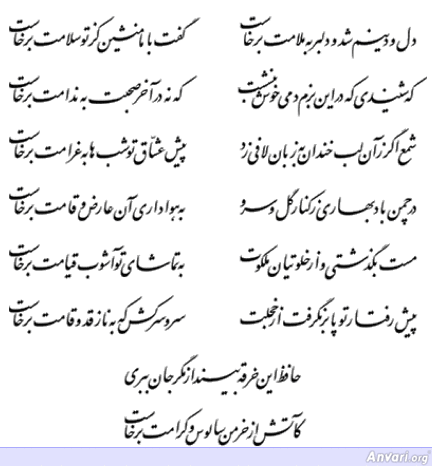 دل و دینم شد و دلبر به ملامت برخاست
گفت با ما منشین کز تو سلامت برخاست
که شنیدی که در این بزم دمی خوش بنشست
که نه در آخر صحبت به ندامت برخاست
شمع اگر زآن لب خندان به زبان لافی زد
پیش عشّاق تو شب ها به غرامت برخاست
در چمن باد بهاری ز کنار گل و سرو
به هواداری آن عارض و قامت برخاست
مست بگذشتی و از خلوتیان ملکوت
به تماشای تو آشوب قیامت برخاست
پیش رفتار تو پا برنگرفت از خجلت
سرو سرکش که به ناز قد و قامت برخاست
حافظ این خرقه بینداز مگر جان ببری
کآتش از خرمن سالوس و کرامت برخاست
Anvari.org